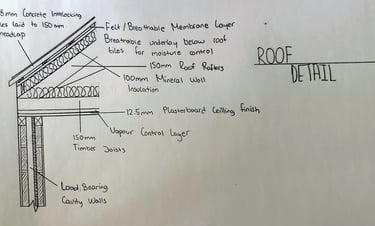 8mm Concrete Interlocking
les laid to 150mm
headlap
Felt / Breathable Membrane Layer
Breathable underlay below roof
tiles for moisture control
150mm Roof Rafters
100mm Mineral Wool
Insulation
12.5mm Plasterboard Ceiling Finish
Vapour Control Layer
150mm
Timber Joists
Load Bearing
Cavity Walls
ROOF
DETAIL